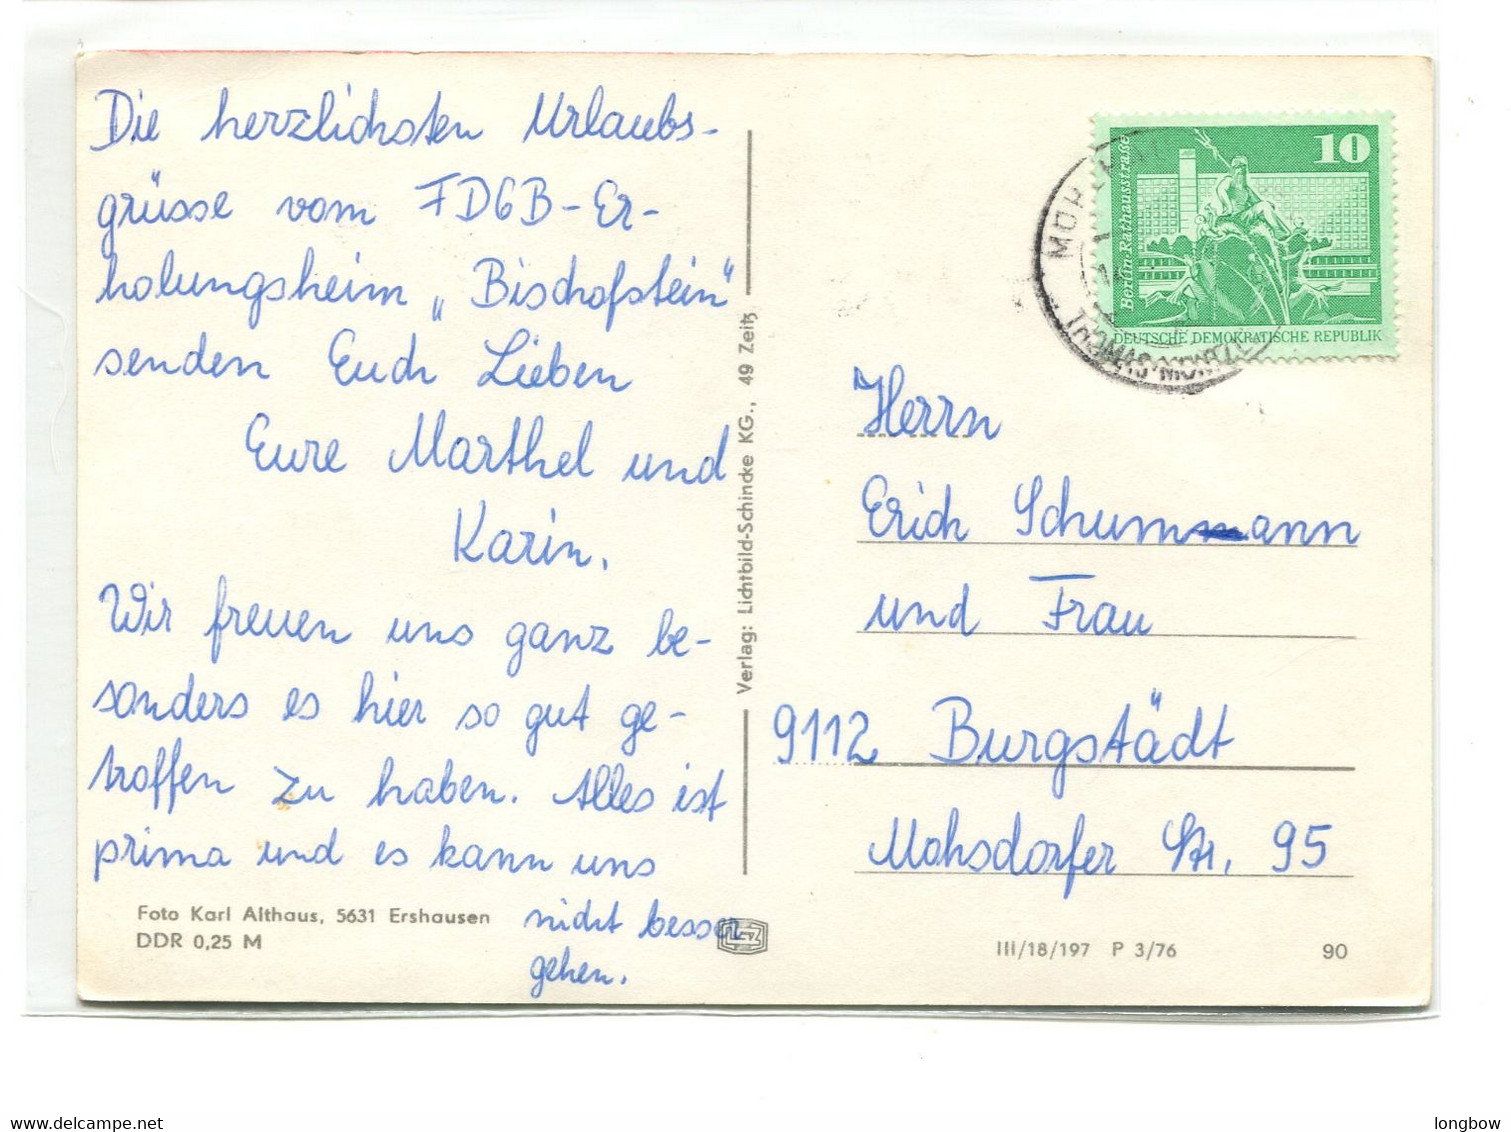 Die herzlichsten Urlaubs-
grüsse vom FDGB-Er-
holungsheim „Bischofstein"
senden Euch Lieben
Eure Marthel und
Karin.
Wir freuen uns ganz be-
sonders es hier so gut ge-
troffen zu haben. Alles ist
prima und es kann uns
nicht besser
gehen.
Foto Karl Althaus, 5631 Ershausen
DDR 0,25 M
Verlag: Lichtbild-Schincke KG., 49 Zeitz
10
Berlin-Rathausstraße
DEUTSCHE DEMOKRATISCHE REPUBLIK
THOMAS-MÜNTZ
Herrn
Erich Schumann
und Frau
9112 Burgstädt
Mohsdorfer Str. 95
III/18/197 P 3/76
90
delcampe.net
longbow